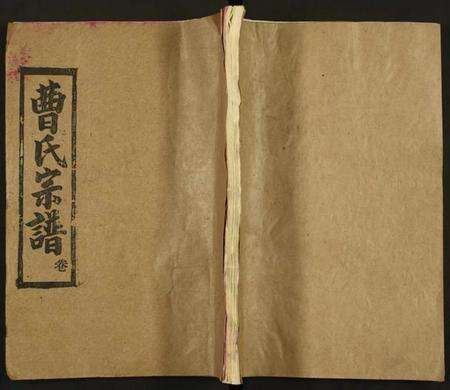 曹氏宗譜
卷